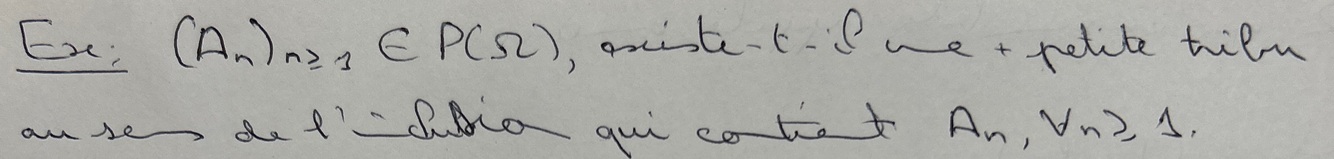 Ex: (An)n≥1 ∈ P(Ω), existe-t-il une + petite tribu
au sens de l'inclusion qui contient An, ∀n≥1.